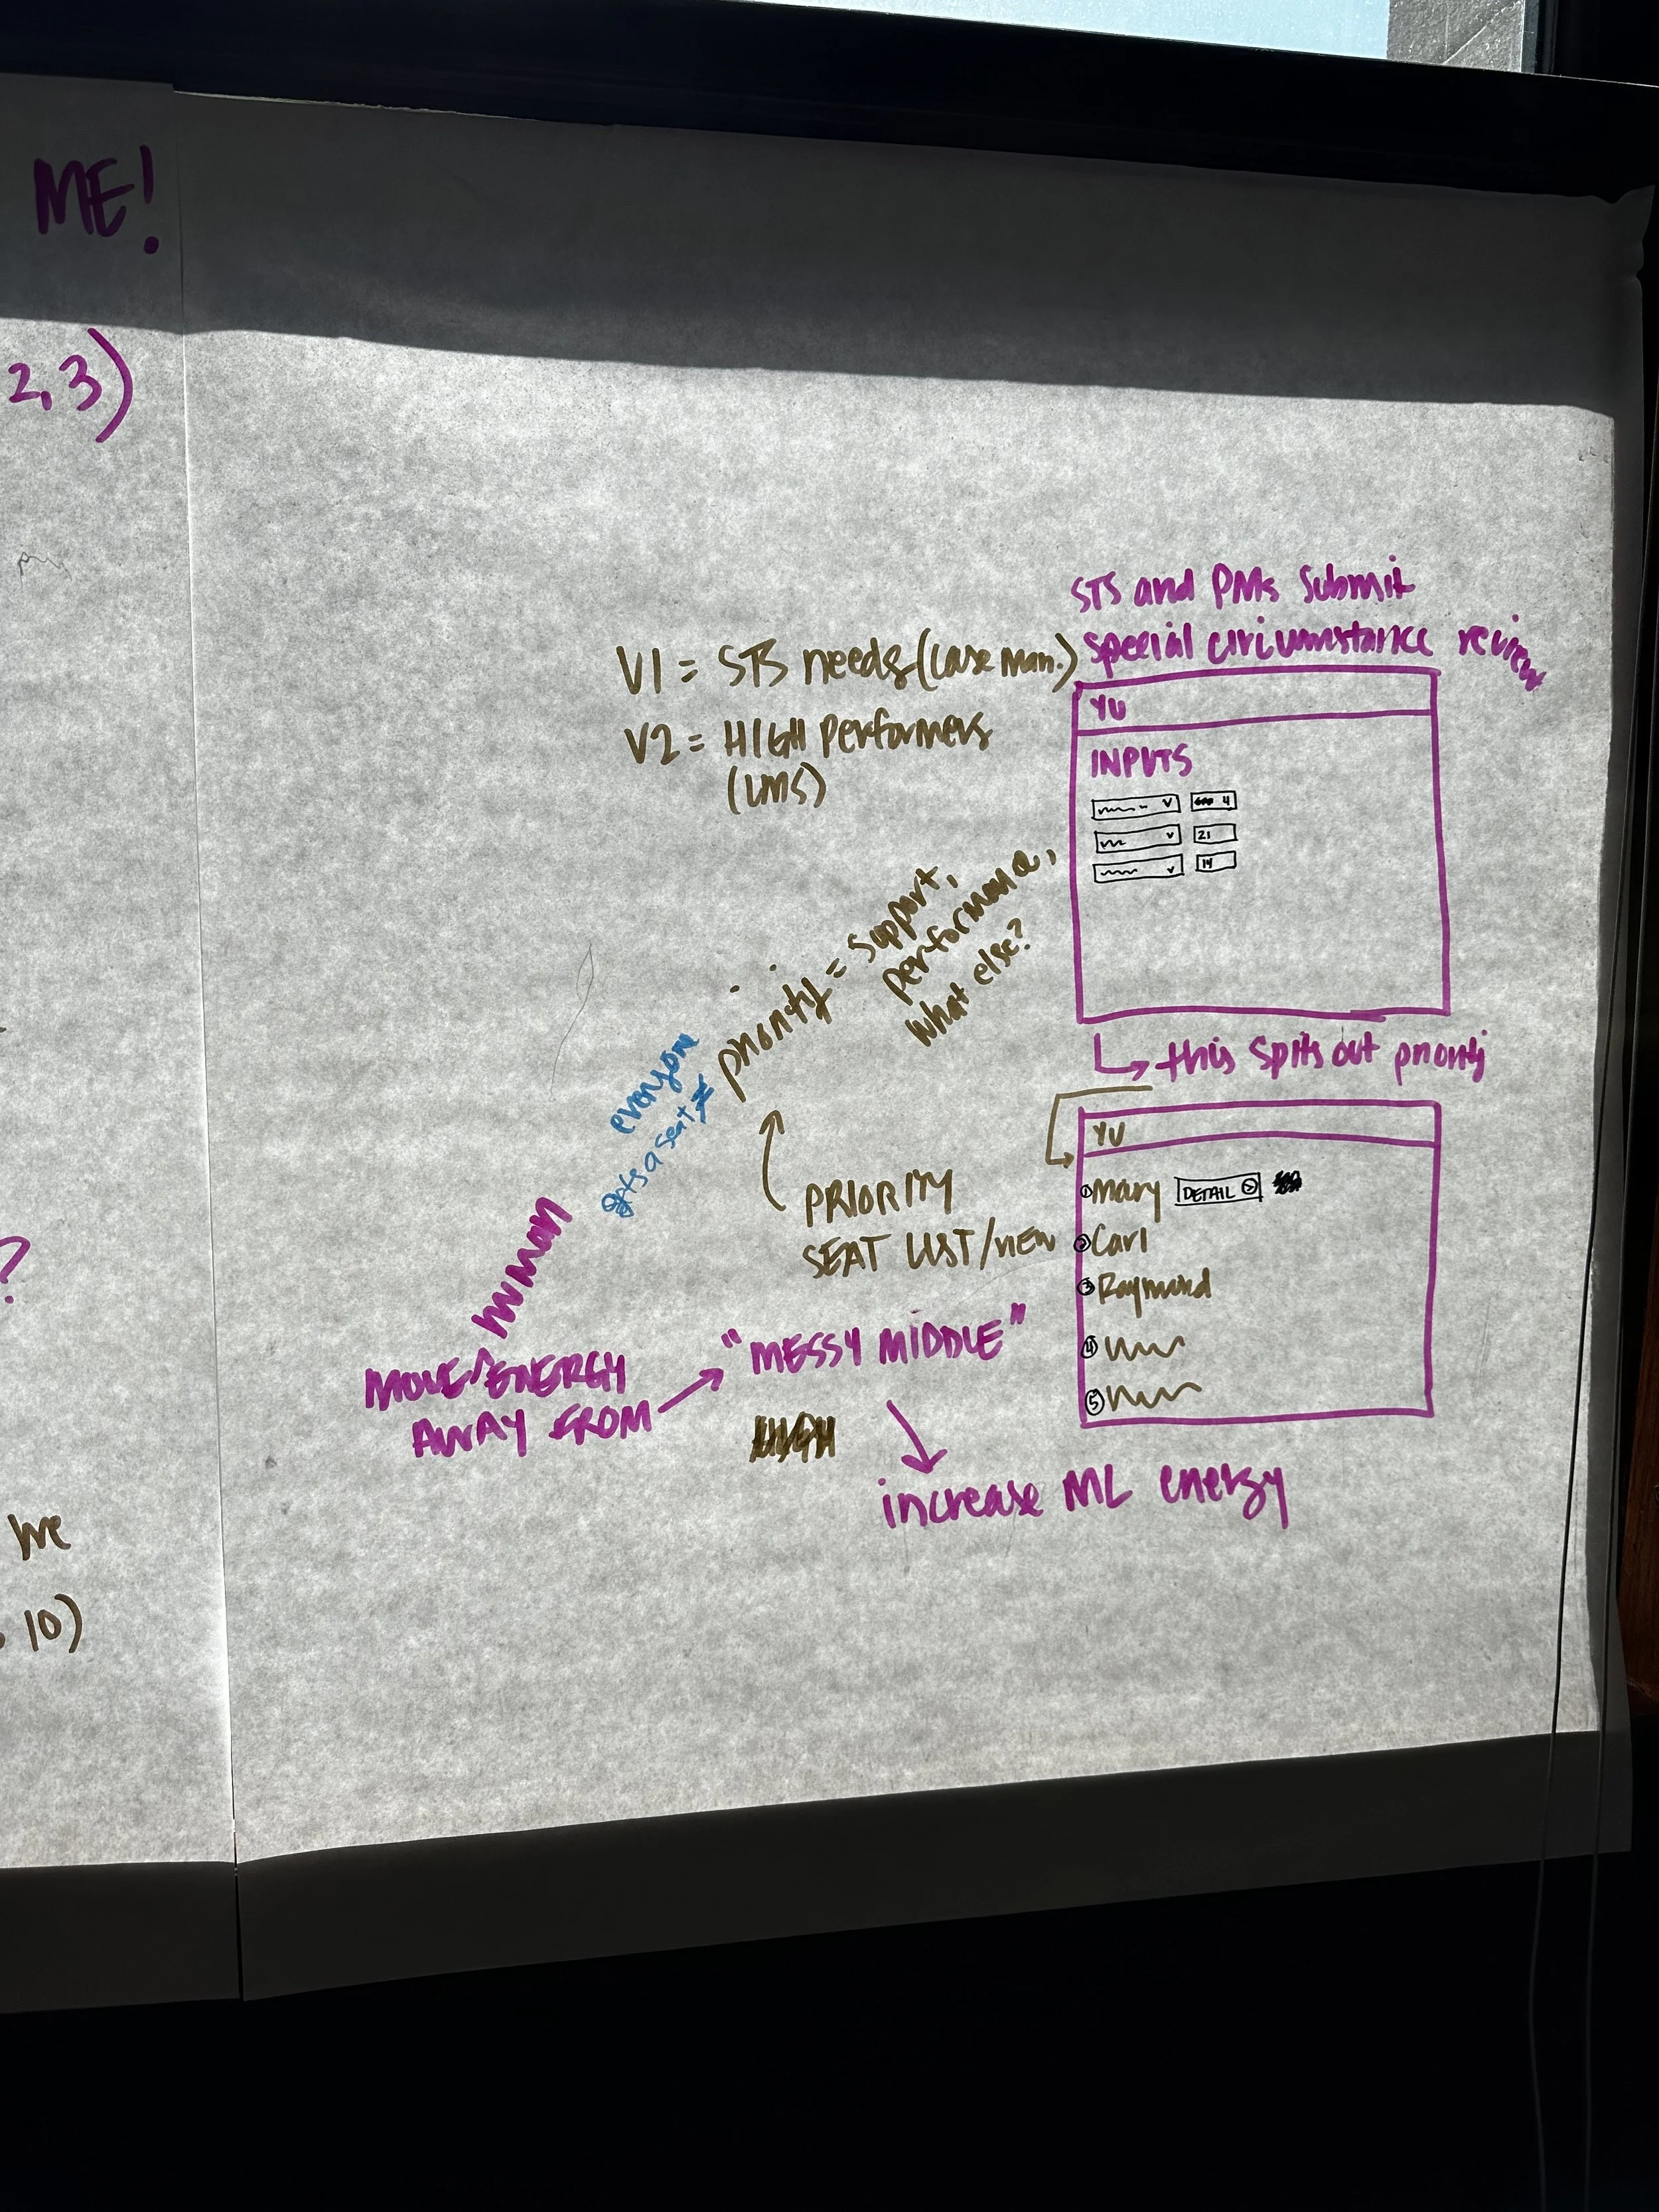 ME!
2, 3)
?
we
, 10)
STS and PMs submit
special circumstance review
V1 = STS needs (case man.)
V2 = HIGH performers
(LMS)
YU
INPUTS
4
21
14
priority = support,
performance,
what else?
everyone
gets a seat ≠
↳ this spits out priority
PRIORITY
SEAT LIST/VIEW
YU
① Mary DETAIL
② Carl
③ Raymond
④
⑤
human
MOVE ^ ENERGY
AWAY FROM → "MESSY MIDDLE"
increase ML energy